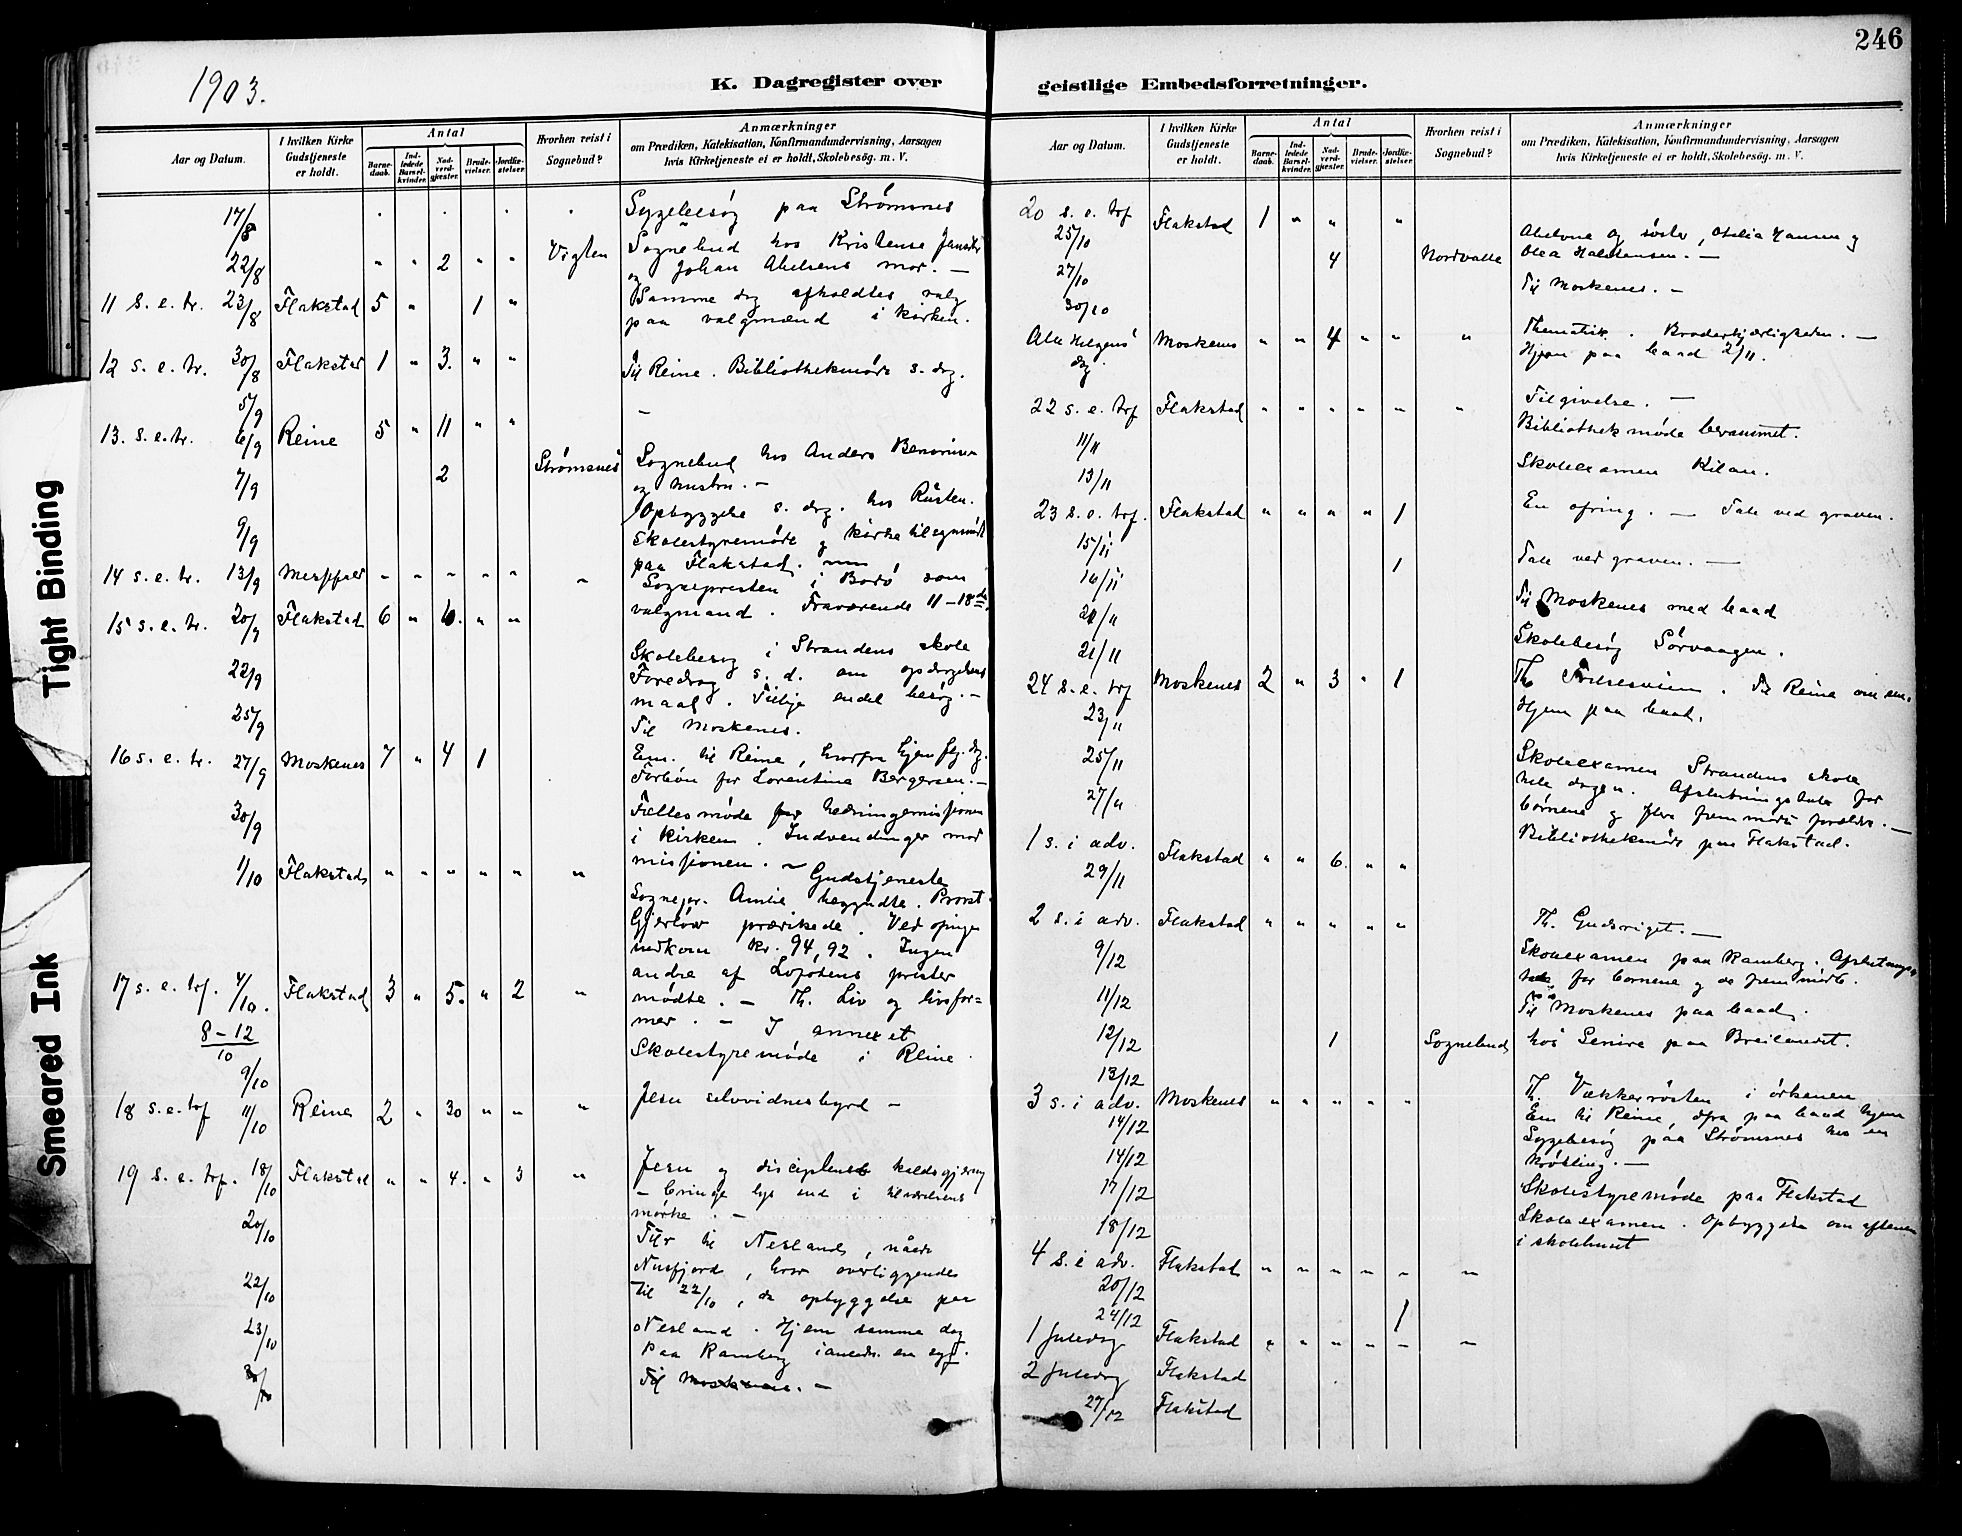 246
1903.
K. Dagregister over geistlige Embedsforretninger.
Tight Binding
Smeared Ink
Aar og Datum.
I hvilken Kirke Gudstjeneste er holdt.
Antal
Barnedaab.
Indledede Barselkvinder.
Nadverdgjæster.
Brudevielser.
Jordfæstelser.
Hvorhen reist i Sognebud?
Anmærkninger
om Prædiken, Katekisation, Konfirmandundervisning, Aarsagen
hvis Kirketjeneste ei er holdt, Skolebesög. m. V.
17/8 Sygebesøg paa Strømsnes
22/8 " " 2 " " Vigten Sognebud hos Kristense
og Johan Abelsens mor. —
11 s. e. tr. 23/8 Flakstad 5 " 1 " Samme dag afholdtes valg
paa valgmænd i kirken.
12 s. e. tr. 30/8 Flakstad 1 " 3. " "
5/9 Til Reine. Bibliothekmøde s. dag.
13. s. e. tr. 6/9 Reine 5 " 11 " " —
7/9 2 Strømsnes Sognebud hos Anders
og hustru. —
Opbyggelse s. dag. hos Rusten.
9/9 Skolestyremøde og kirketilsynsmøde
paa Flakstad.
14 s. e. tr. 13/9 Messefald " " " " " " Sognepresten i Bodø som
valgmand. Fraværende 11–18de
15 s. e. tr. 20/9 Flakstad 6 " 6. " "
22/9 Skolebesøg i Strandens skole
Foredrag s. d. om opdragelsens
maal. Tilhje endel besøg. —
25/9 Til Moskenes.
16 s. e. tr. 27/9 Moskenes 7 " 4 1 Em. til Reine, hvorfra hjem flg. dg.
Forbøn for Lorentina Bergersen. —
30/9 Fællesmøde for hedningemissionen
i kirken. Indvendinger mod
missionen. —
1/10 Flakstad " " " " " " Gudstjeneste
Sognepr. Amlie begyndte. Provst
Gjerløw prædikede. Ved ofringen
indkom kr. 94,92. Ingen
andre af Lofotens prester
mødte. —
17 s. e. tref. 4/10. Flakstad 3 " 5. " 2 " Th. Liv og livsfor=
mer. —
8–12/10 I annexet
9/10 Skolestyremøde i Reine
18 s. e. tref 11/10 Reine 2 " 30 " " " Jesu selvvidnesbyrd —
19 s. e. tref. 18/10 Flakstad " " 4. " 3 " Jesu og disciplenes kaldsgjerning
— bringe lys ind i tilværelsens
mørke. —
20/10 Til Nesland, naaede
Nusfjord, hvor overliggendes
22/10 til 22/10, da opbyggelse paa
Nesland. Hjem samme dag
23/10 Paa Ramberg
30/10 Til Moskenes. —
Aar og Datum.
I hvilken Kirke Gudstjeneste er holdt.
Antal
Barnedaab.
Indledede Barselkvinder.
Nadverdgjæster.
Brudevielser.
Jordfæstelser.
Hvorhen reist i Sognebud?
Anmærkninger
om Prædiken, Katekisation, Konfirmandundervisning, Aarsagen
hvis Kirketjeneste ei er holdt, Skolebesög. m. V.
20 s. e. tref 25/10 Flakstad 1 " " "
27/10 4 Nordvalle Abelone og søster, Otelia Hansen og
Olea Halstensen. —
30/10 Til Moskenes. —
Alle Helgens dag. Moskenes " " 4 " " " Thematik. Broderkjærligheden. —
Hjem paa baad 2/11.
22 s. e. tref Flakstad " " " " " " Tilgivelse. —
11/11 Bibliothekmøde berammet.
13/11 Skoleexamen Kilan.
23 s. e. tref. 15/11 Flakstad " " " " 1 En ofring. — Tale ved graven.
16/11 1 Tale ved graven. —
20/11 Til Moskenes med baad
21/11 Skolebesøg Sørvaagen.
24 s. e. tref 23/11 Moskenes 2 " 3 " 1 Th. Til Reine om em.
Hjem paa baad.
25/11 Skoleexamen Strandens skole
27/11 hele dagen. Afslutningstale for
børnene og flere fremmødte forældre. —
Bibliothekmøde paa Flakstad.
1 s. i adv. 29/11 Flakstad " " 6. " "
2 s. i adv. Flakstad " " " " " Th. Gudsriget. —
9/12 Skoleexamen paa Ramberg. Afslutnings
tale for børnene og de fremmødte.
11/12 Til Moskenes paa baad.
12/12 1 Sognebud hos paa Breilandet.
13/12
3 s. i adv. Moskenes " " " " " Th. Vækkerrøsten i ørkenen
14/12 Em til Reine, dfra paa baad hjem
14/12 Sygebesøg paa Strømsnes hos en
17/12 Skolestyremøde paa Flakstad
18/12 Skoleexamen. Opbyggelse om aftenen
i skolehuset
4 s. i adv. 20/12 Flakstad " " " " " "
24/12 1
1 juledag Flakstad " " " " " "
2 juledag Flakstad
27/12 Flakstad